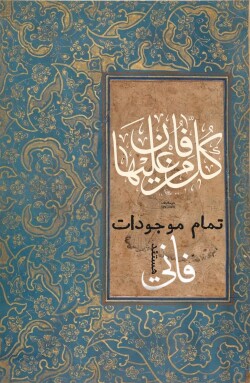 كُلُّ مَنْ عَلَيْهَا فَانٍ
تمام موجودات
فانی
هستند